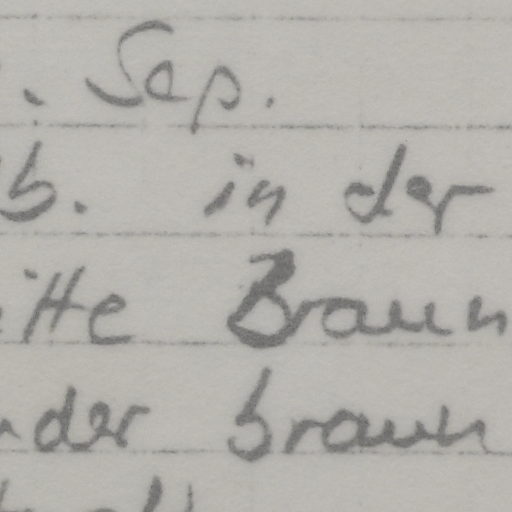 . Sep.
b. in der
itte Braun
nder braun